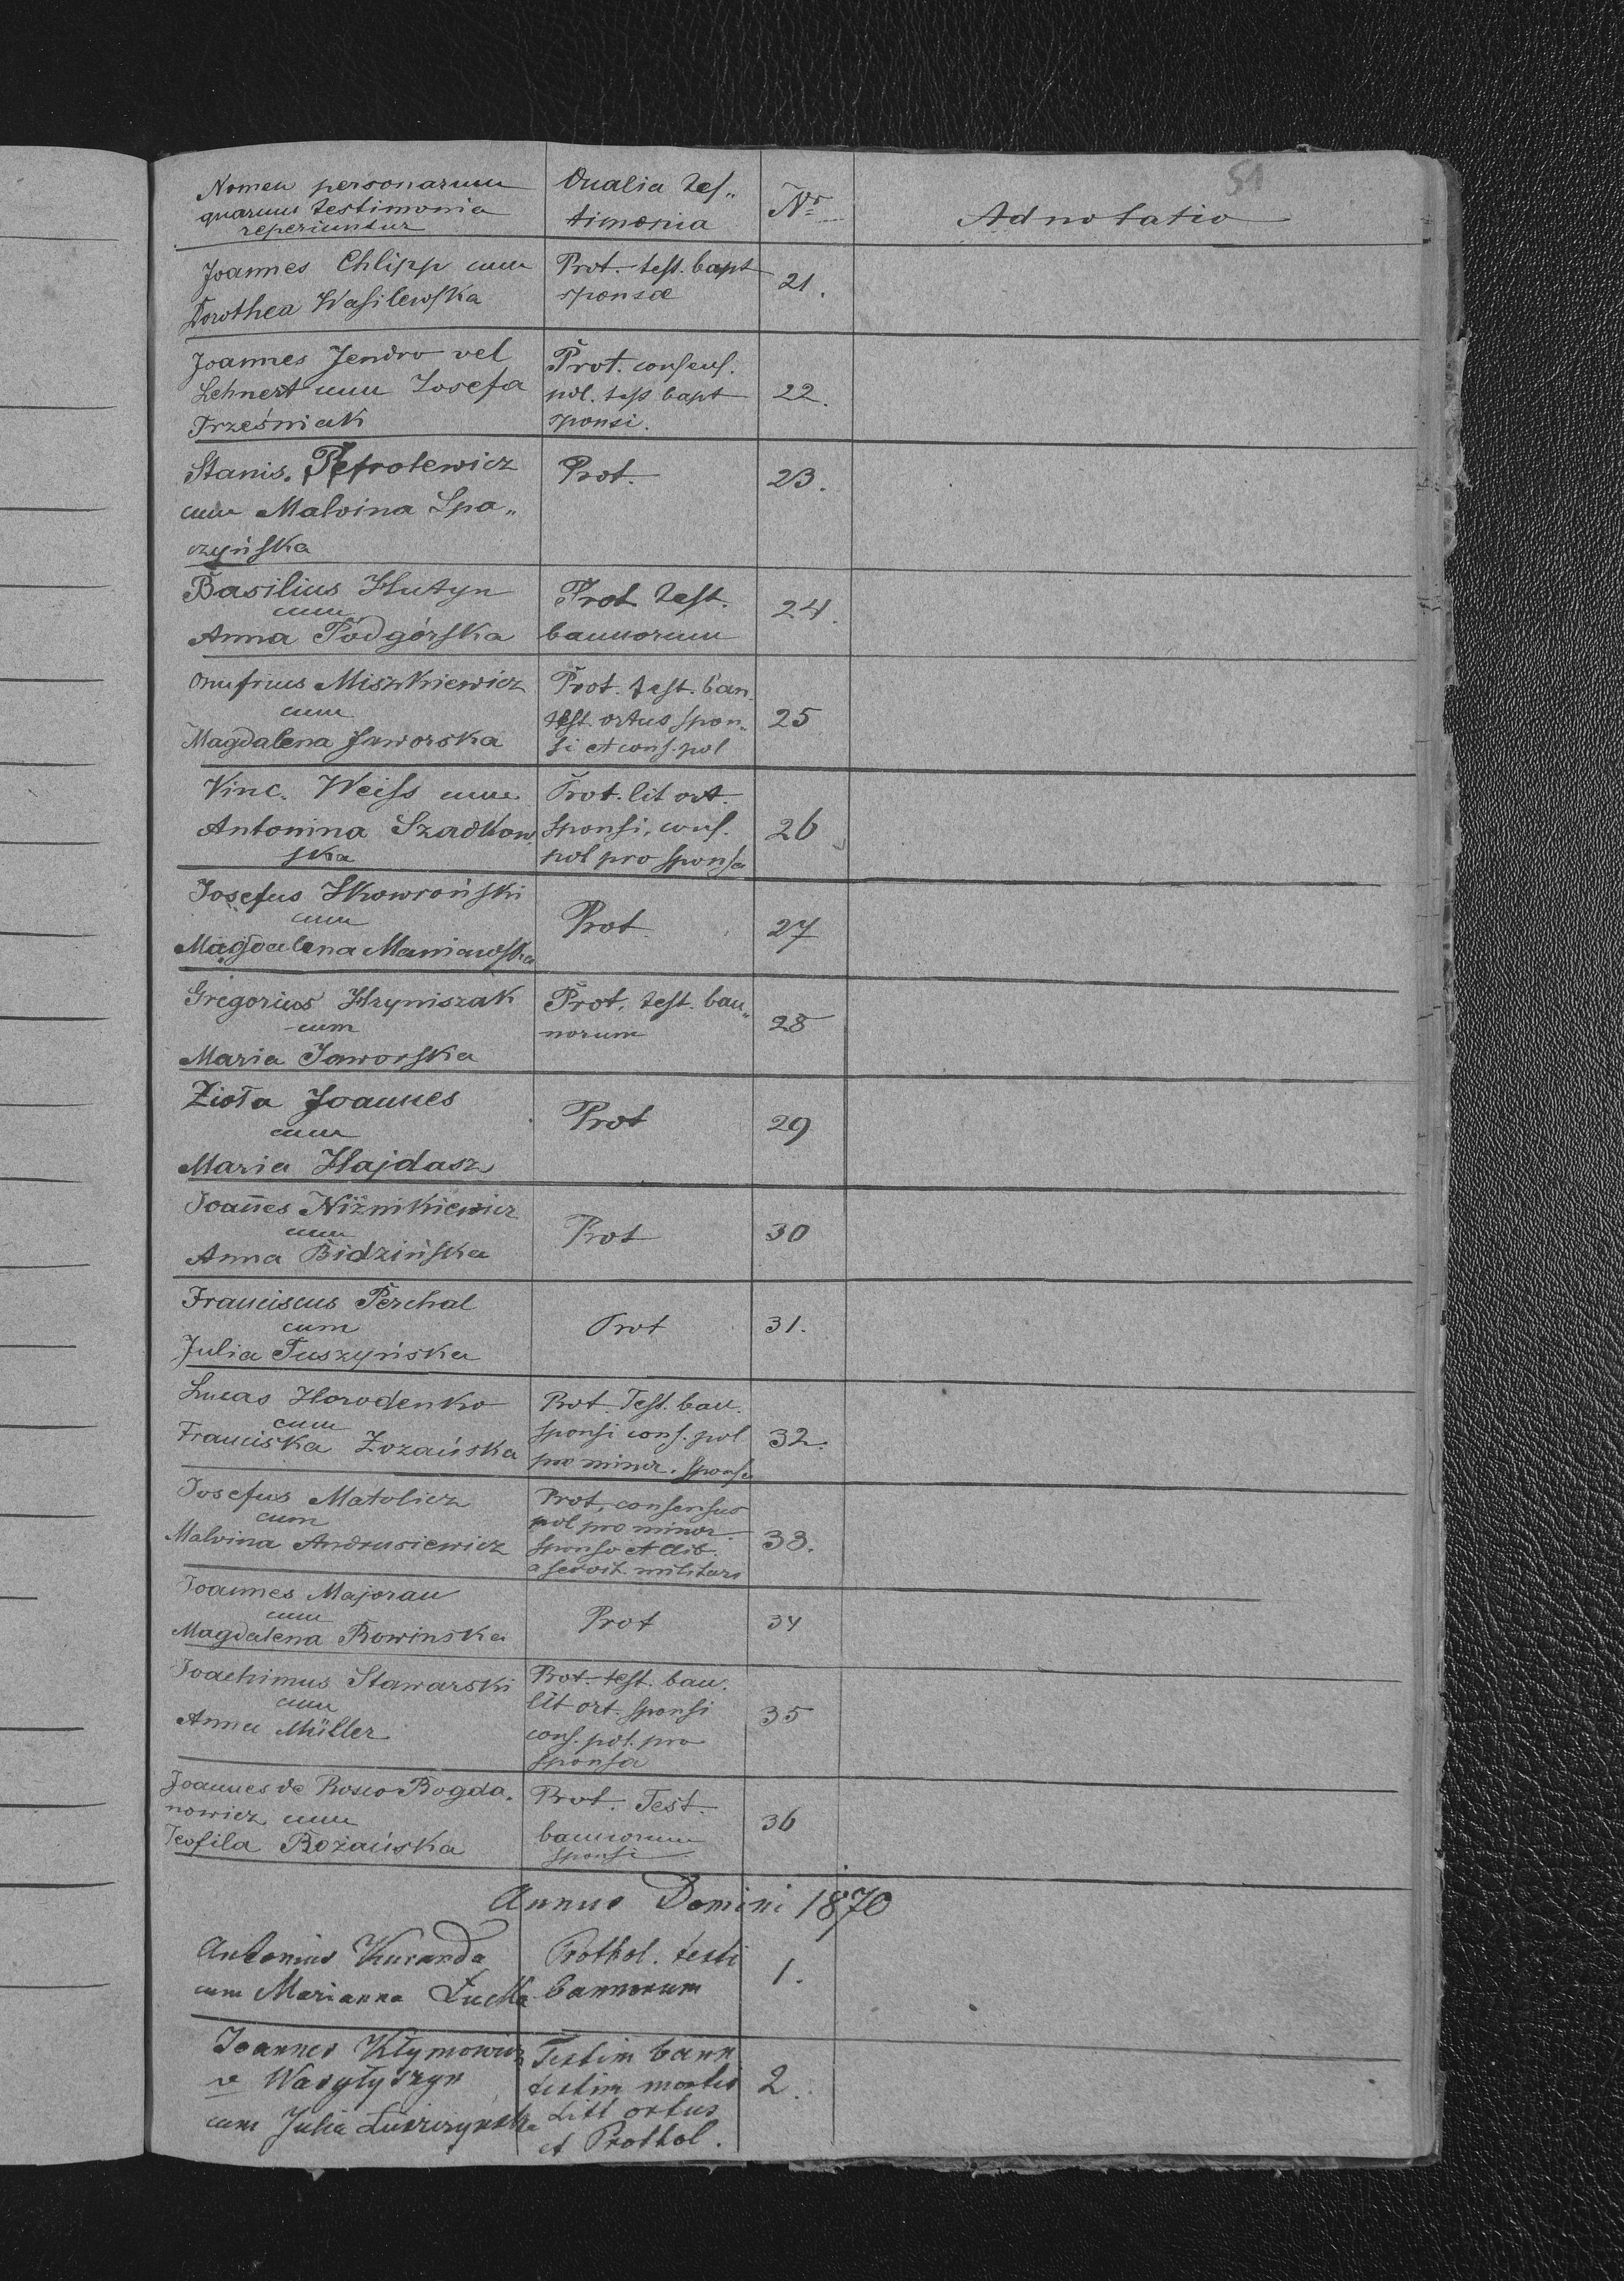 51
Nomen personarum
quarum testimonia
reperiuntur
Qualia tes„
timonia
Nr
Adnotatio
Joannes Chlipp cum
Dorothea Wasilewska
Prot. test. bapt
sponsae
21.
Joannes Jendro vel
Lehnert cum Josefa
Trześniak
Prot. consens.
pol. tess bapt
sponsi.
22.
Stanis. Petrolewicz
cum Malvina Spa„
czyńska
Prot.
23.
Basilius Hutyn
cum
Anna Podgórska
Prot test.
bannorum
24.
Onufrius Miszkiewicz
cum
Magdalena Jaworska
Prot. test. ban.
test. ortus spon„
si et cons. pol
25
Vinc. Weiss cum
Antonina Szadkow„
ska
Prot. lit ort.
sponsi, cons.
pol pro sponsa
26
Josefus Skowroński
cum
Magdalena Maniawska
Prot
27
Gregorius Hryniszak
cum
Maria Jaworska
Prot. test. ban„
norum
28
Zioła Joannes
cum
Maria Hajdasz
Prot
29
Joañes Niżnikiewicz
cum
Anna Bidzińska
Prot
30
Franciscus Perchal
cum
Julia Tuszyńska
Prot
31.
Lucas Horodenko
cum
Franciska Zozańska
Prot. Test. ban.
sponsi cons. pol
pro minor. sponsa
32.
Josefus Matolicz
cum
Malvina Andrusiewicz
Prot, consensus
pol pro minor.
sponso et lib.
a servit. militari
33.
Joannes Majoran
cum
Magdalena Rowinska
Prot
34
Joachimus Stawarski
cum
Anna Müller
Prot. test. ban.
lit ort. sponsi
cons. pol. pro
sponsa
35
Joannes de Rosco Bogda„
nowicz cum
Teofila Rożańska
Prot. Test.
bannorum
sponsi
36
Annus Domini 1870
Antonius Kuranda
cum Marianna Łucka
Prothol. testi
bannorum
1.
Joannes Kłymowicz
ve Wasyłyszyn
cum Julia
Testim bann
testim mortis
Litt ortus
et Prothol.
2.